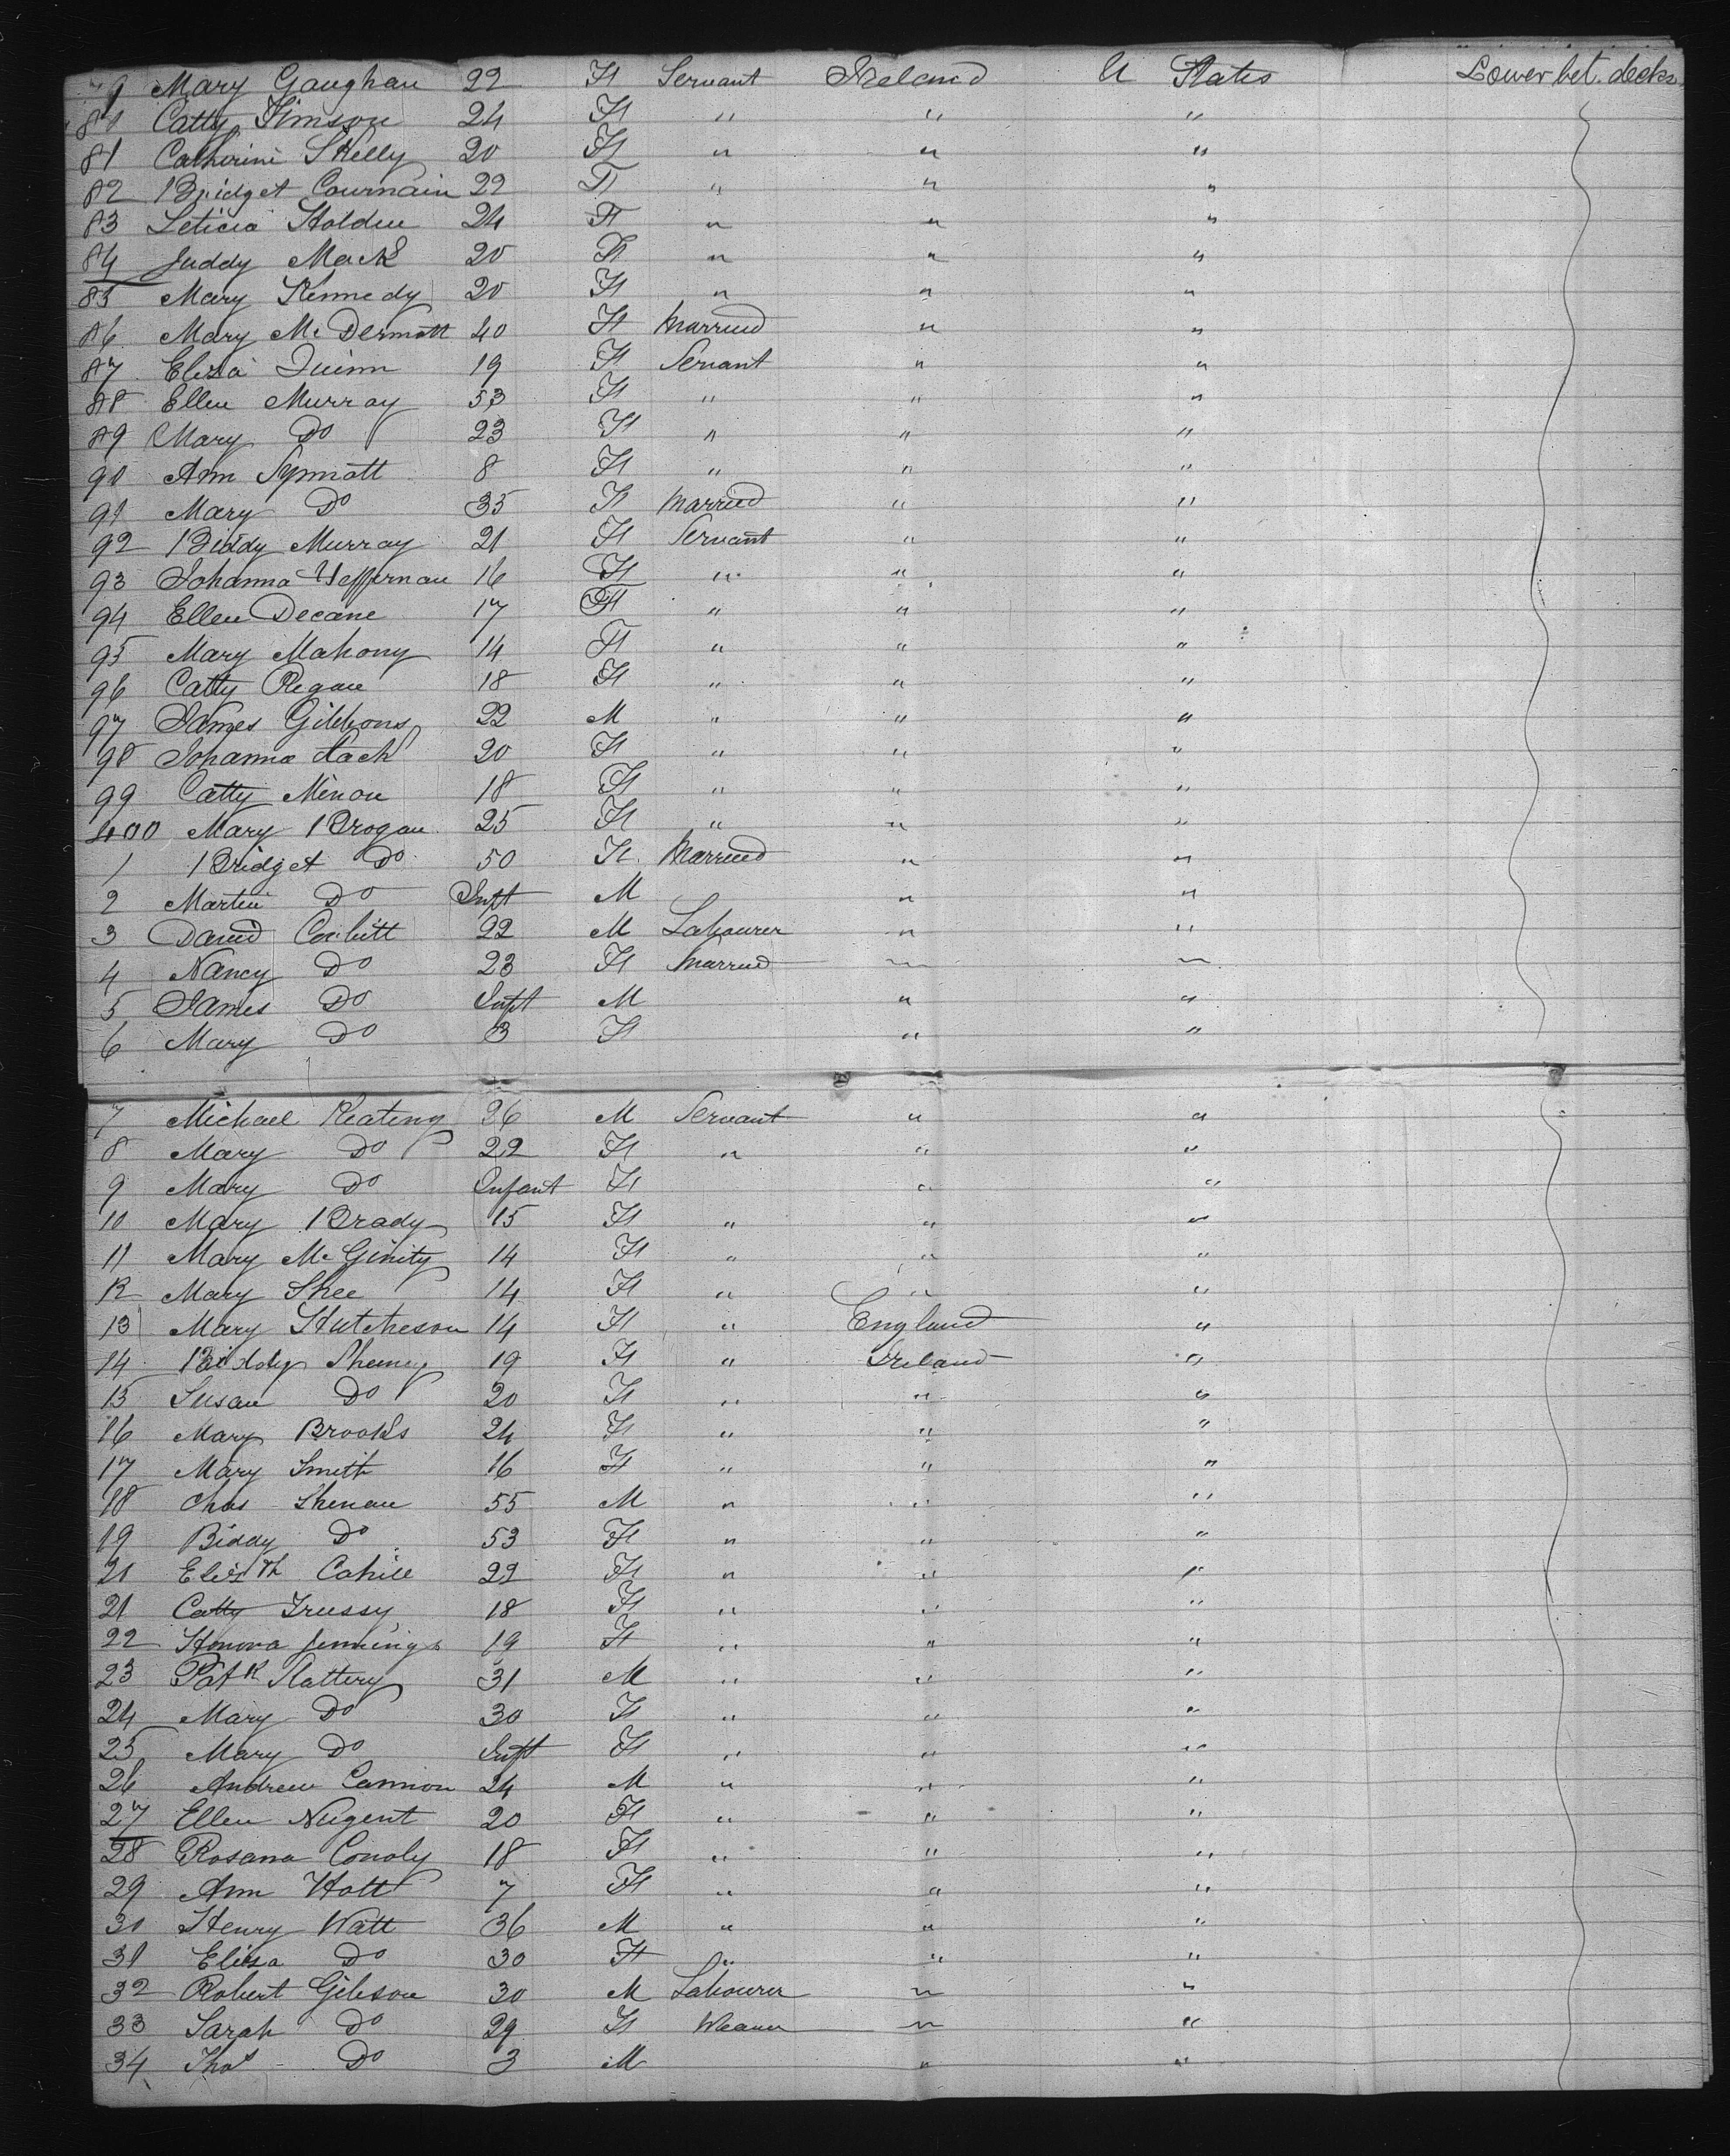 79 Mary Gaughan 22 F Servant Ireland U States Lower bet. decks
80 Catty Timson 24 F " " "
81 Catherine Skelly 20 F " " "
82 Bridget Cournain 22 F " " "
83 Leticia Holden 24 F " " "
84 Juddy Mack 20 F " " "
85 Mary Kennedy 20 F " " "
86 Mary Mc Dermott 40 F Married " "
87 Eliza Quinn 19 F Servant " "
88 Ellen Murray 53 F " " "
89 Mary Do 23 F " " "
90 Ann Synnott 8 F " " "
91 Mary Do 35 F Married " "
92 Biddy Murray 21 F Servant " "
93 Johanna Heffernan 16 F " " "
94 Ellen Decane 17 F " " "
95 Mary Mahony 14 F " " "
96 Catty Regan 18 F " " "
97 James Gibbons 22 M " " "
98 Johanna 20 F " " "
99 Catty Minon 18 F " " "
400 Mary Brogan 25 F " " "
1 Bridget Do 50 F Married " "
2 Martin Do Inft M " "
3 David Corbitt 22 M Labourer " "
4 Nancy Do 23 F Married " "
5 James Do Inft M " "
6 Mary Do 3 F " "
7 Michael Keating 26 M Servant " "
8 Mary Do 22 F " " "
9 Mary Do Infant F " "
10 Mary Brady 15 F " " "
11 Mary Mc Ginity 14 F " " "
12 Mary Shee 14 F " " "
13 Mary Hutcheson 14 F " England "
14 Biddy 19 F " Ireland "
15 Susan Do 20 F " " "
16 Mary Brooks 24 F " " "
17 Mary Smith 16 F " " "
18 Chas Shenan 55 M " " "
19 Biddy Do 53 F " " "
20 Elizth Cahill 22 F " " "
21 Catty Trussy 18 F " " "
22 Honora Jennings 19 F " " "
23 Patk Slattery 31 M " " "
24 Mary Do 30 F " " "
25 Mary Do Inft F " " "
26 Andrew Cannon 24 M " " "
27 Ellen Nugent 20 F " " "
28 Rosana Conoly 18 F " " "
29 Ann Hott 7 F " " "
30 Henry Watt 36 M " " "
31 Eliza Do 30 F " " "
32 Robert Gibson 30 M Labourer " "
33 Sarah Do 29 F Weaver " "
34 Thos Do 3 M " "